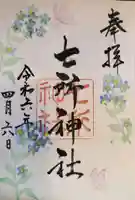 奉拝
七所神社
令和六年
四月六日